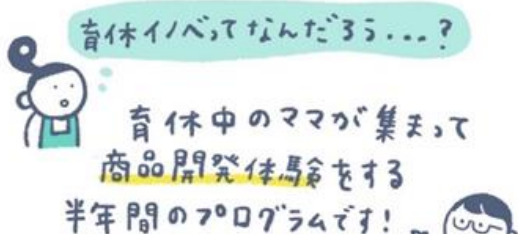 育休イノベってなんだろう...?
育休中のママが集まって
商品開発体験をする
半年間のプログラムです!